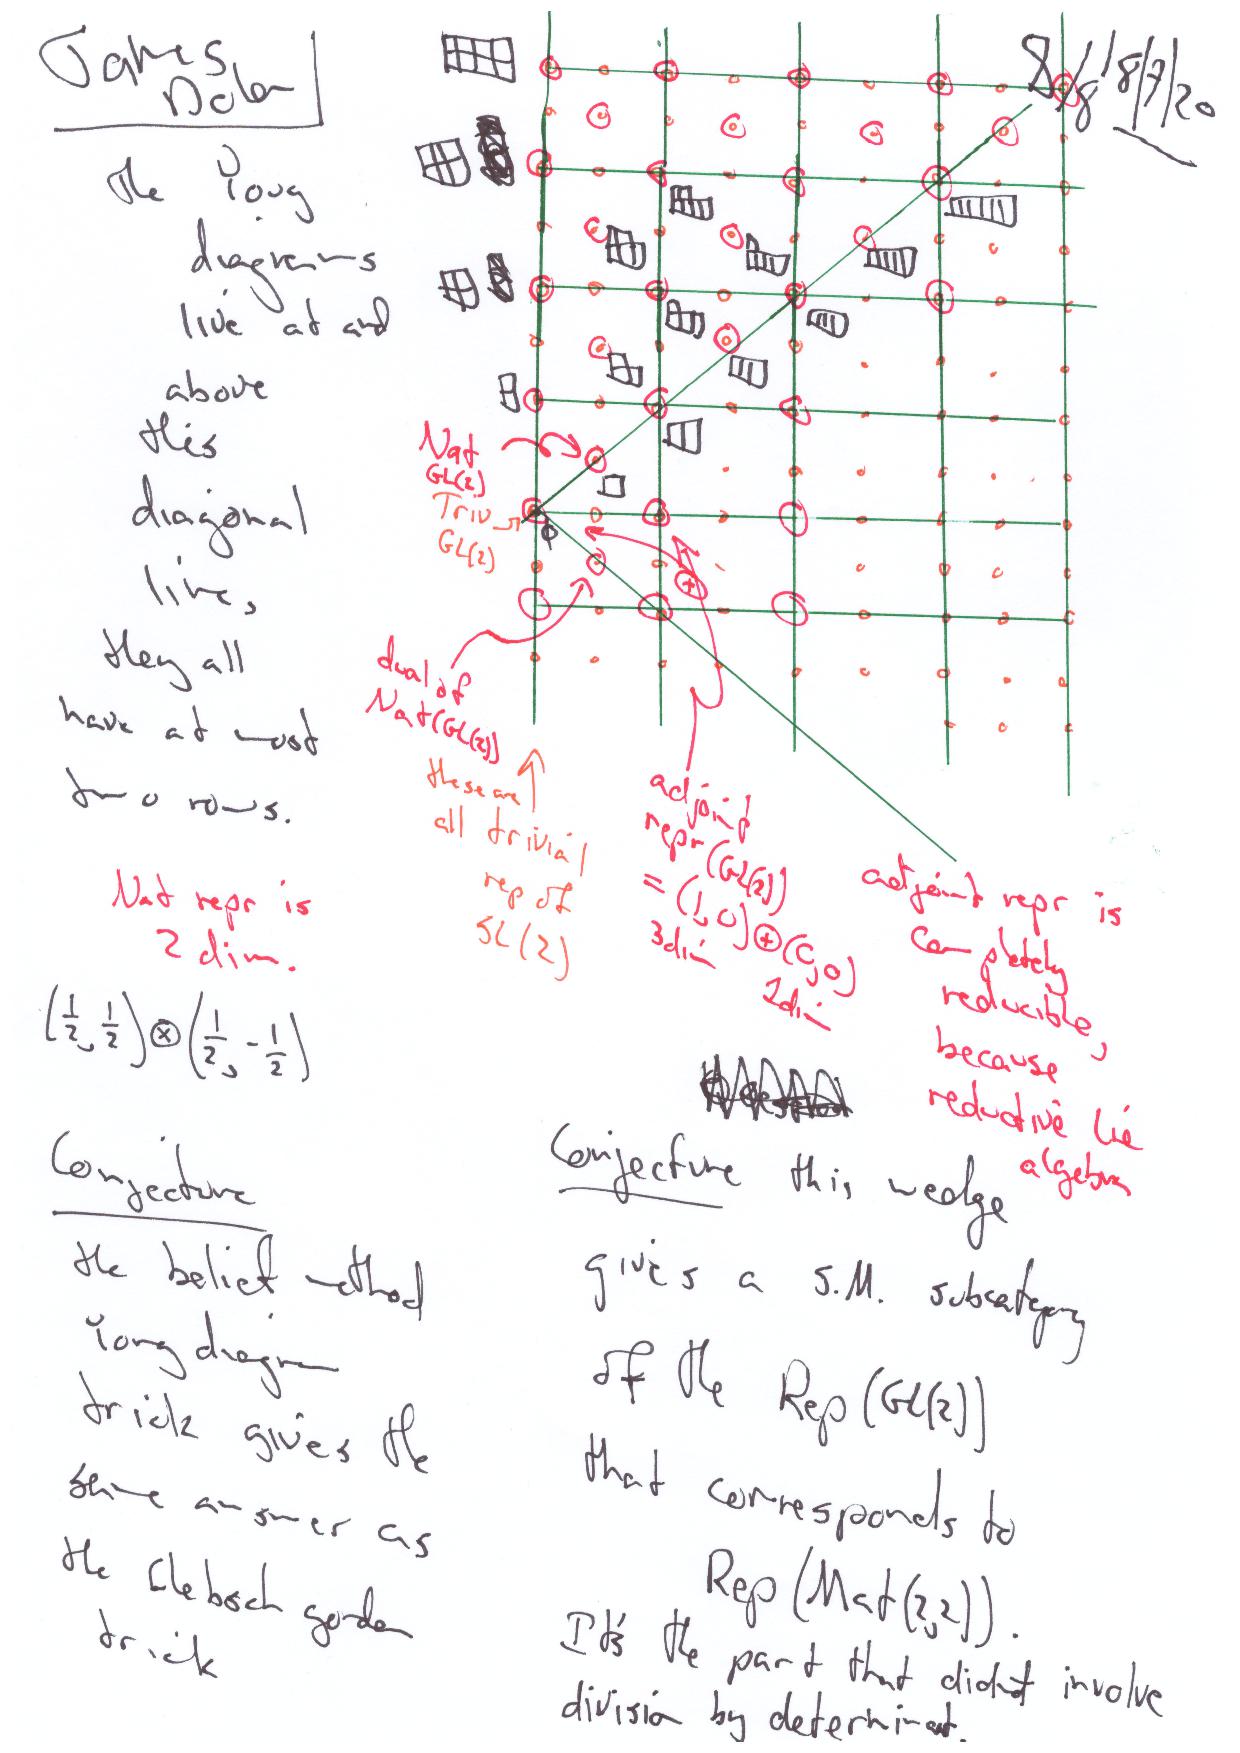 James
Dolan
8/8'8/7/20
the Youg
diagrams
live at and
above
this
diagonal
line,
they all
have at most
two rows.
Nat
GL(2)
Triv
GL(2)
φ
dual of
Nat(GL(2))
these are
all trivial
rep of
SL(2)
adjoint
repr(GL(2))
= (1,0)⊕(0,0)
3dim
1dim
adjoint repr is
completely
reducible,
because
reductive lie
algebra
Nat repr is
2 dim.
(1/2, 1/2)⊗(1/2, -1/2)
Conjecture
the belief method
Yong diagram
trick gives the
same answer as
the Clebsch gordan
trick
Conjecture this wedge
gives a S.M. subcategory
of the Rep(GL(2))
that corresponds to
Rep(Mat(2,2)).
It's the part that didn't involve
division by determinant.